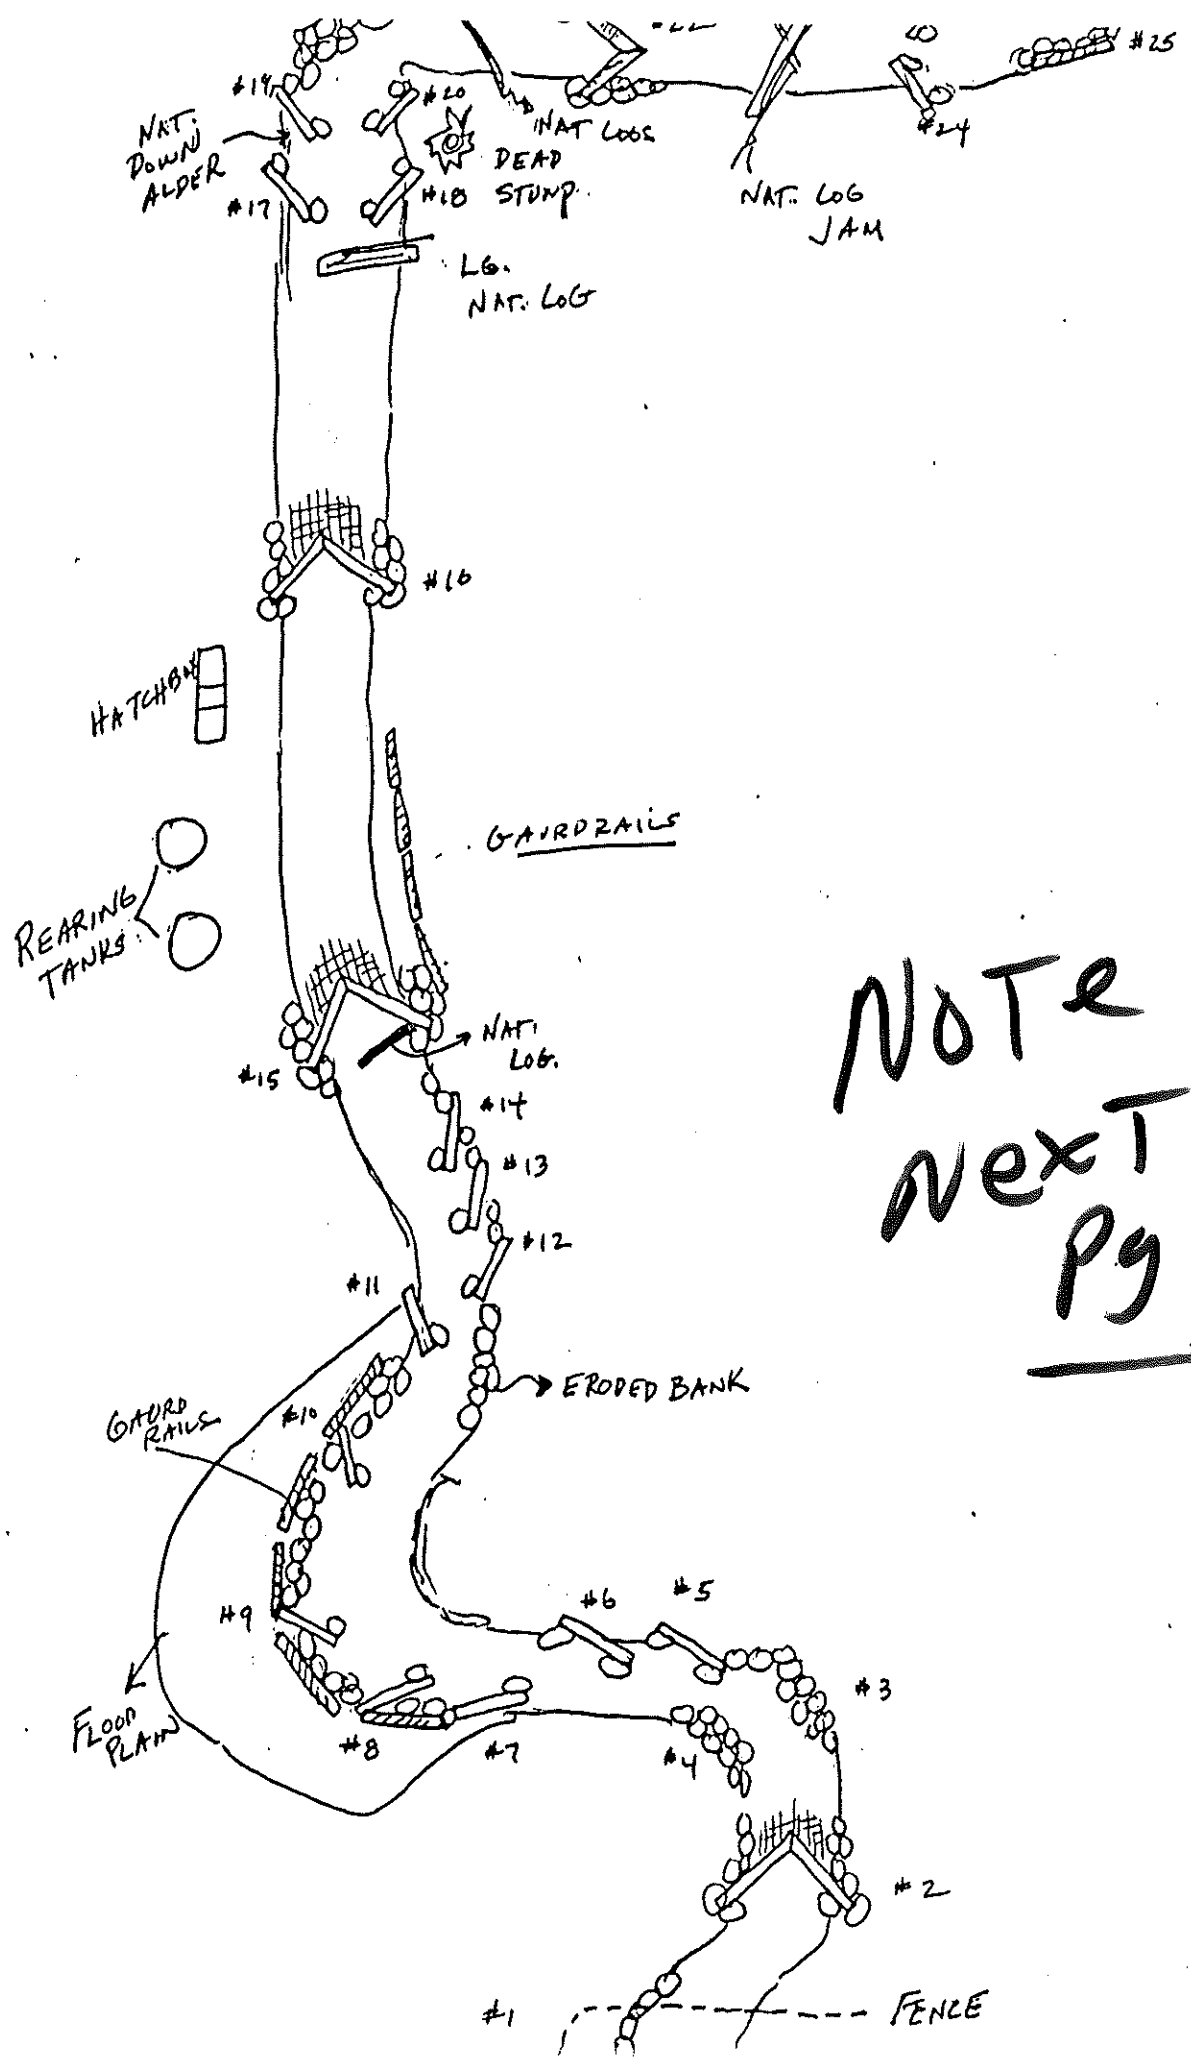 #25
#19
#20
#24
NAT.
DOWN
ALDER
NAT LOGS
DEAD
STUMP.
#17
#18
NAT. LOG
JAM
LG.
NAT. LOG
#16
HATCHBOX
GAURDRAILS
REARING
TANKS
NOTe
NexT
Pg
NAT.
LOG.
#15
#14
#13
#12
#11
ERODED BANK
GAURD
RAILS
#10
#6
#5
#9
#3
FLOOD
PLAIN
#8
#7
#4
#2
#1
FENCE